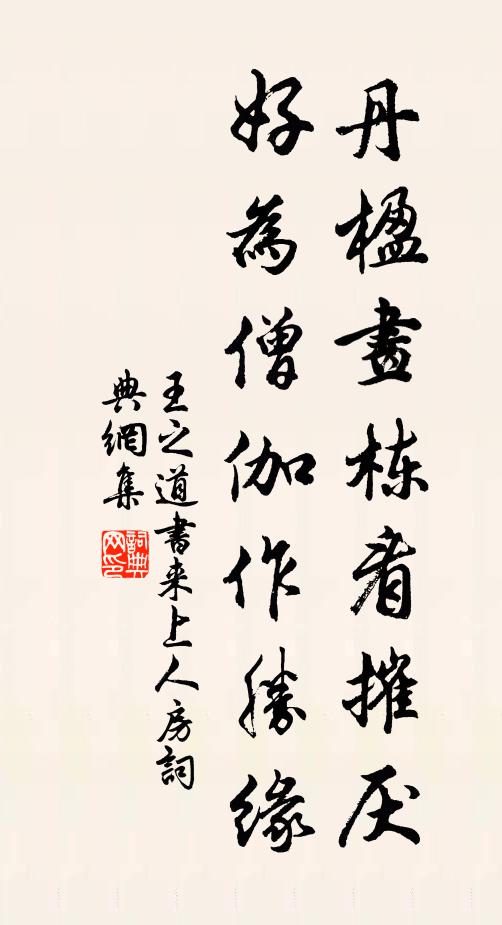 丹楹畫栋看摧厌
好為僧伽作勝緣
王之道書来上人房詞
典網集
詞典
网印